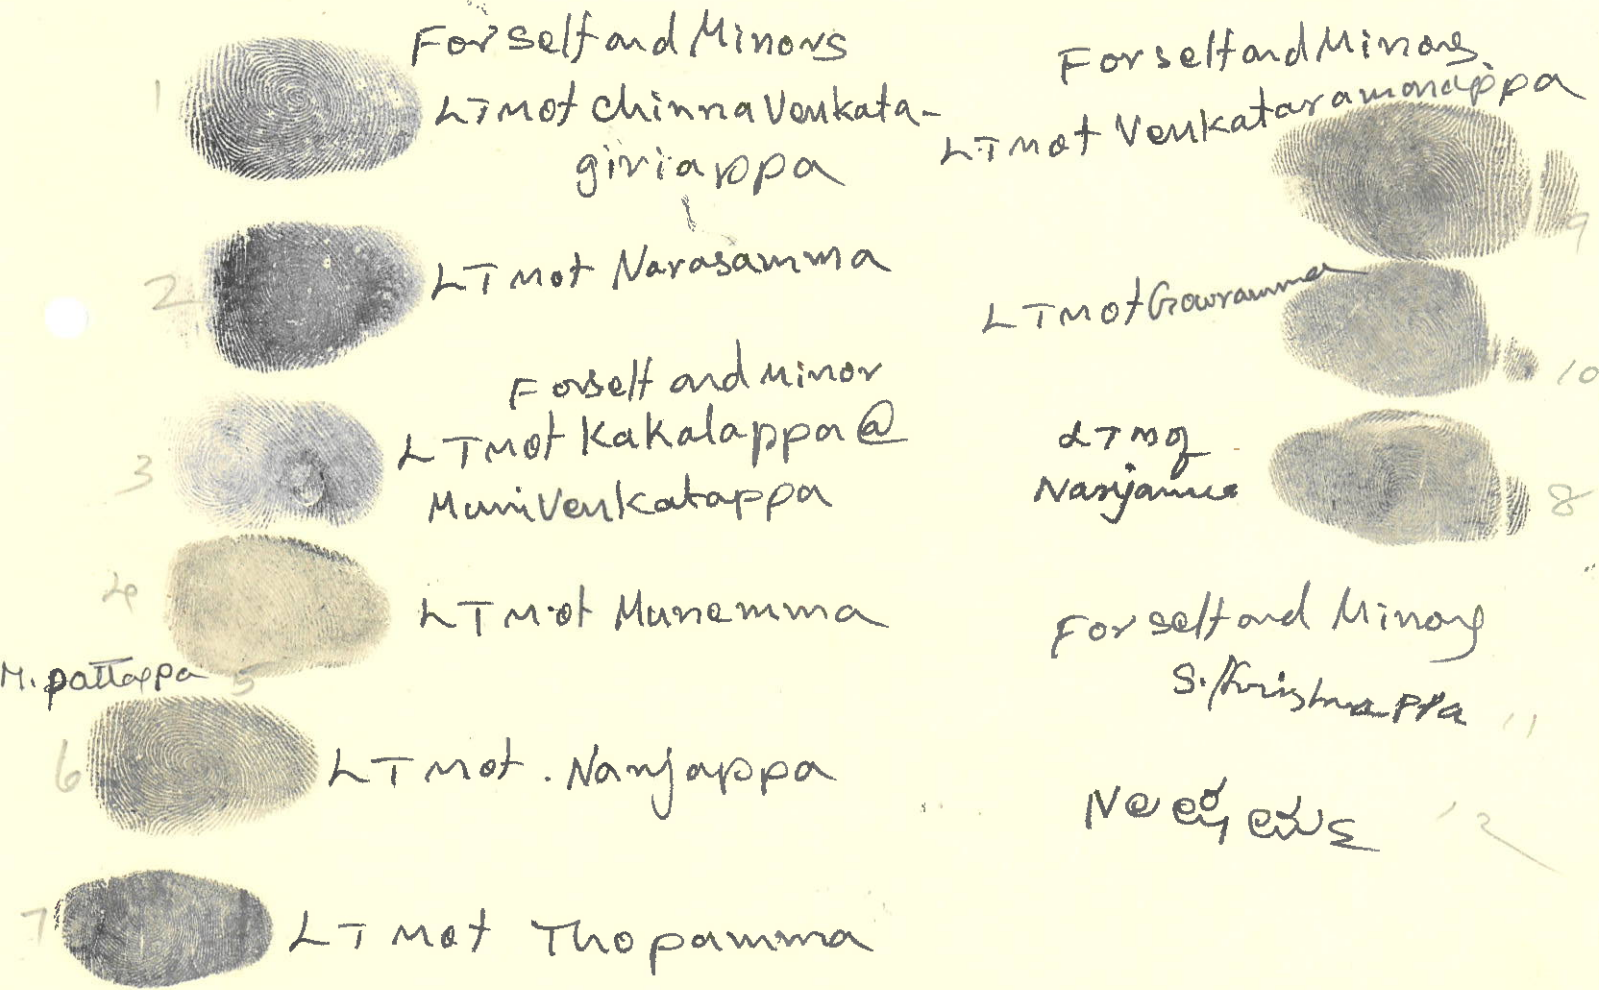 1
For Self and Minors
LTM of Chinna Venkata-
giriappa
2
LTM of Narasamma
For self and Minor
3
LTM of Kakalappa @
Muni Venkatappa
4
LTM of Munemma
M. pattappa 5
6
LTM of . Nanjappa
7
LTM of Thopamma
For self and Minors
LTM of Venkataramanappa
9
LTM of Gowramma
10
LTM of
Nanjamma
8
For self and Minors
S. Krishnappa 11
12